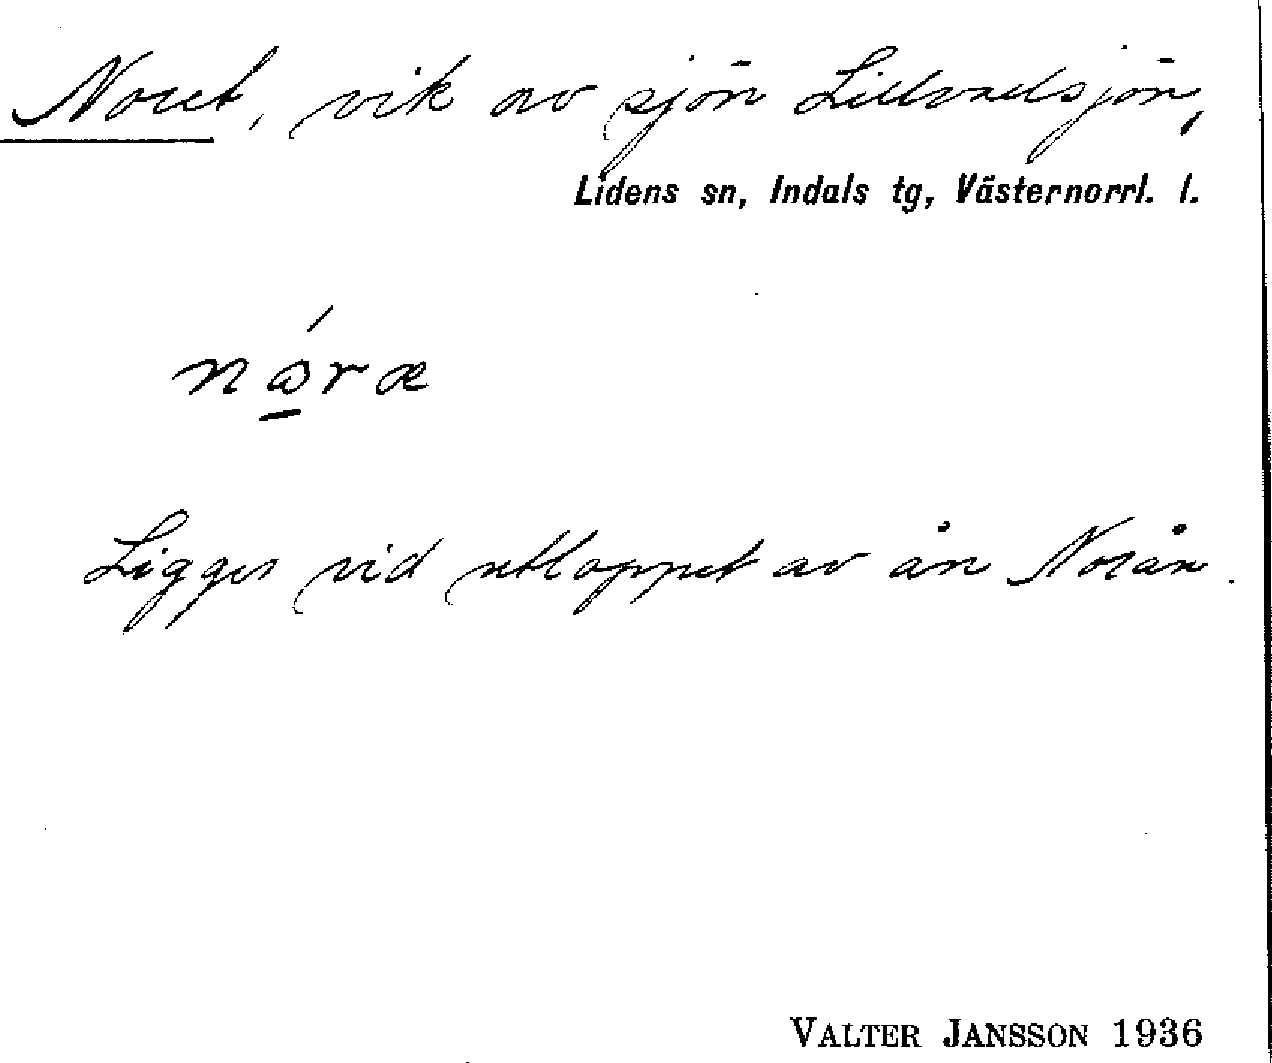 Noret, vik av sjön
Lidens sn, Indals tg, Västernorrl. l.
Ligger vid utloppet av ån Norån.
VALTER JANSSON 1936